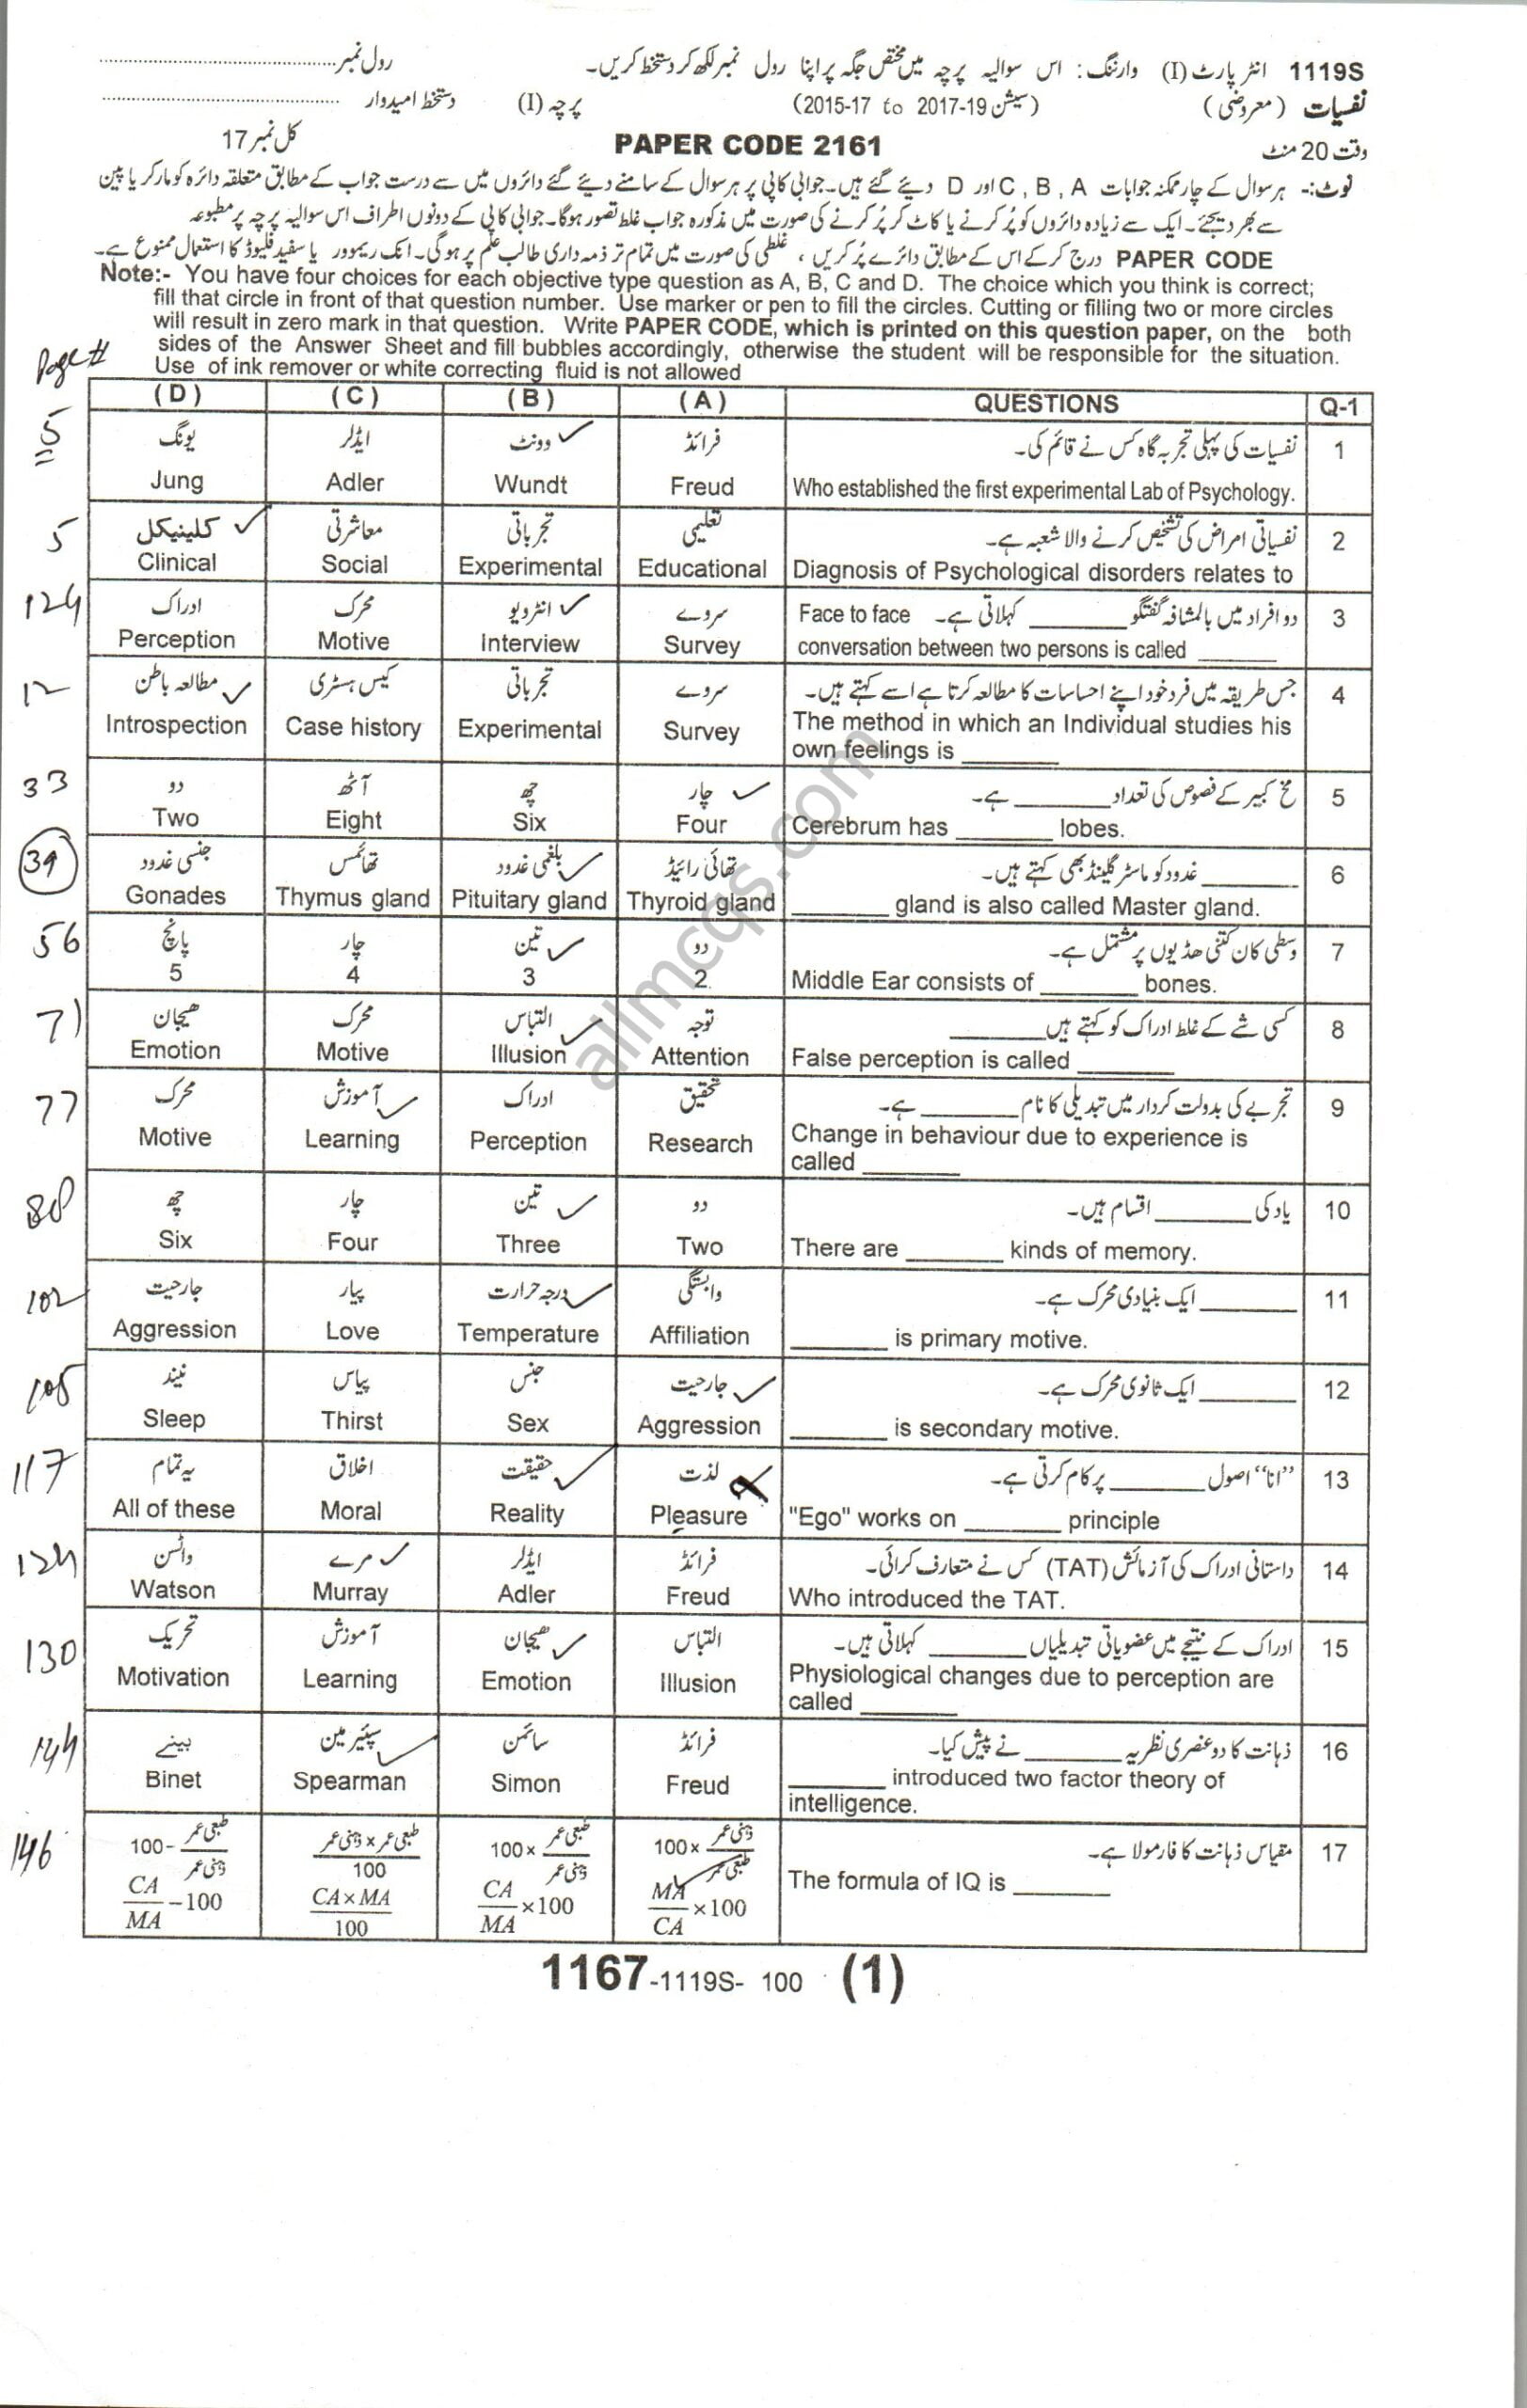 1119S انٹر پارٹ (I) وارننگ: اس سوالیہ پرچہ میں مختص جگہ پر اپنا رول نمبر لکھ کر دستخط کریں۔ رول نمبر
نفسیات (معروضی) (سیشن 2015-17 to 2017-19) پرچہ (I) دستخط امیدوار
وقت 20 منٹ PAPER CODE 2161 کل نمبر 17
نوٹ:- ہر سوال کے چار ممکنہ جوابات A , B , C اور D دیئے گئے ہیں۔ جوابی کاپی پر ہر سوال کے سامنے دیئے گئے دائروں میں سے درست جواب کے مطابق متعلقہ دائرہ کو مارکر یا پین
سے بھر دیجئے۔ ایک سے زیادہ دائروں کو پُر کرنے یا کاٹ کر پُر کرنے کی صورت میں مذکورہ جواب غلط تصور ہوگا۔ جوابی کاپی کے دونوں اطراف اس سوالیہ پرچہ پر مطبوعہ
PAPER CODE درج کر کے اس کے مطابق دائرے پُر کریں ، غلطی کی صورت میں تمام تر ذمہ داری طالب علم پر ہوگی۔ انک ریموور یا سفید فلیوڈ کا استعمال ممنوع ہے۔
Note:- You have four choices for each objective type question as A, B, C and D. The choice which you think is correct;
fill that circle in front of that question number. Use marker or pen to fill the circles. Cutting or filling two or more circles
will result in zero mark in that question. Write PAPER CODE, which is printed on this question paper, on the both
sides of the Answer Sheet and fill bubbles accordingly, otherwise the student will be responsible for the situation.
Use of ink remover or white correcting fluid is not allowed
Page #
(D) (C) (B) (A) QUESTIONS Q-1
5 یونگ ایڈلر وونٹ فرائڈ نفسیات کی پہلی تجربہ گاہ کس نے قائم کی۔ 1
Jung Adler Wundt Freud Who established the first experimental Lab of Psychology.
5 کلینیکل معاشرتی تجرباتی تعلیمی نفسیاتی امراض کی تشخیص کرنے والا شعبہ ہے۔ 2
Clinical Social Experimental Educational Diagnosis of Psychological disorders relates to
124 ادراک محرک انٹرویو سروے دو افراد میں بالمشافہ گفتگو ________ کہلاتی ہے۔ Face to face 3
Perception Motive Interview Survey conversation between two persons is called ________
12 مطالعہ باطن کیس ہسٹری تجرباتی سروے جس طریقہ میں فرد خود اپنے احساسات کا مطالعہ کرتا ہے اسے کہتے ہیں۔ 4
Introspection Case history Experimental Survey The method in which an Individual studies his
own feelings is ________
33 دو آٹھ چھ چار مخ کبیر کے فصوص کی تعداد ________ ہے۔ 5
Two Eight Six Four Cerebrum has ________ lobes.
39 جنسی غدود تھائمس بلغمی غدود تھائی رائیڈ ________ غدود کو ماسٹر گلینڈ بھی کہتے ہیں۔ 6
Gonades Thymus gland Pituitary gland Thyroid gland ________ gland is also called Master gland.
56 پانچ چار تین دو وسطی کان کتنی ھڈیوں پر مشتمل ہے۔ 7
5 4 3 2. Middle Ear consists of ________ bones.
71 ھیجان محرک التباس توجہ کسی شے کے غلط ادراک کو کہتے ہیں ________ 8
Emotion Motive Illusion Attention False perception is called ________
77 محرک آموزش ادراک تحقیق تجربے کی بدولت کردار میں تبدیلی کا نام ________ ہے۔ 9
Motive Learning Perception Research Change in behaviour due to experience is
called ________
88 چھ چار تین دو یاد کی ________ اقسام ہیں۔ 10
Six Four Three Two There are ________ kinds of memory.
102 جارحیت پیار درجہ حرارت وابستگی ________ ایک بنیادی محرک ہے۔ 11
Aggression Love Temperature Affiliation ________ is primary motive.
105 نیند پیاس جنس جارحیت ________ ایک ثانوی محرک ہے۔ 12
Sleep Thirst Sex Aggression ________ is secondary motive.
117 یہ تمام اخلاق حقیقت لذت "انا" اصول ________ پر کام کرتی ہے۔ 13
All of these Moral Reality Pleasure "Ego" works on ________ principle
124 واٹسن مرے ایڈلر فرائڈ داستانی ادراک کی آزمائش (TAT) کس نے متعارف کرائی۔ 14
Watson Murray Adler Freud Who introduced the TAT.
130 تحریک آموزش ھیجان التباس ادراک کے نتیجے میں عضویاتی تبدیلیاں ________ کہلاتی ہیں۔ 15
Motivation Learning Emotion Illusion Physiological changes due to perception are
called ________
144 بینے سپئیرمین سائمن فرائڈ ذہانت کا دو عنصری نظریہ ________ نے پیش کیا۔ 16
Binet Spearman Simon Freud ________ introduced two factor theory of
intelligence.
146 طبعی عمر/ذہنی عمر -100 طبعی عمر × ذہنی عمر/100 طبعی عمر/ذہنی عمر ×100 ذہنی عمر/طبعی عمر ×100 مقیاس ذہانت کا فارمولا ہے۔ 17
CA/MA −100 CA×MA/100 CA/MA ×100 MA/CA ×100 The formula of IQ is ________
1167-1119S- 100 (1)
allmcqs.com